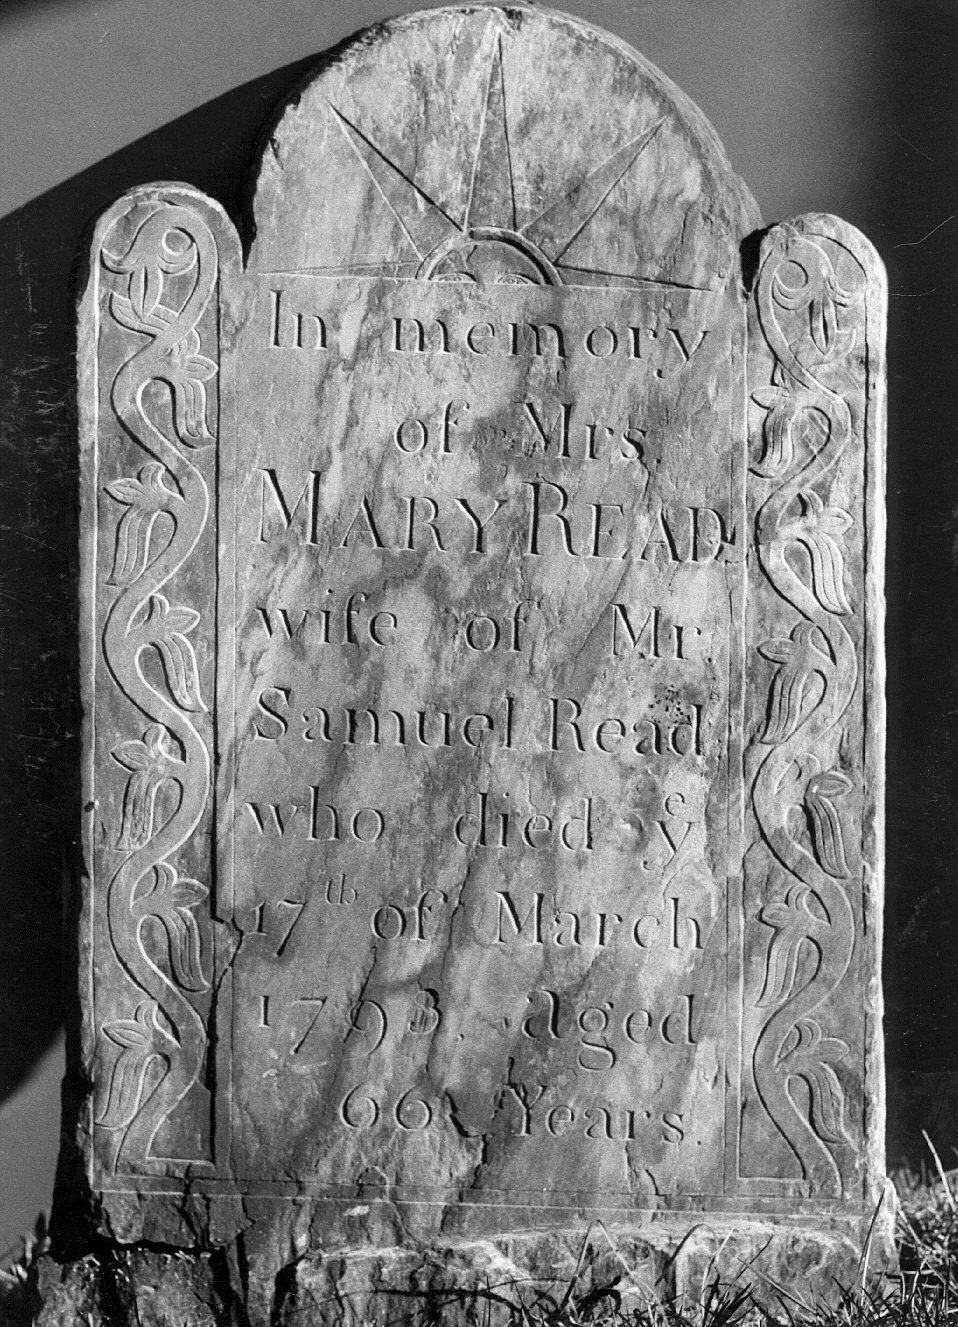 In memory
of Mrs
MARY READ
wife of Mr
Samuel Read
who died yͤ
17ᵗʰ of March
1798. aged
66 Years.